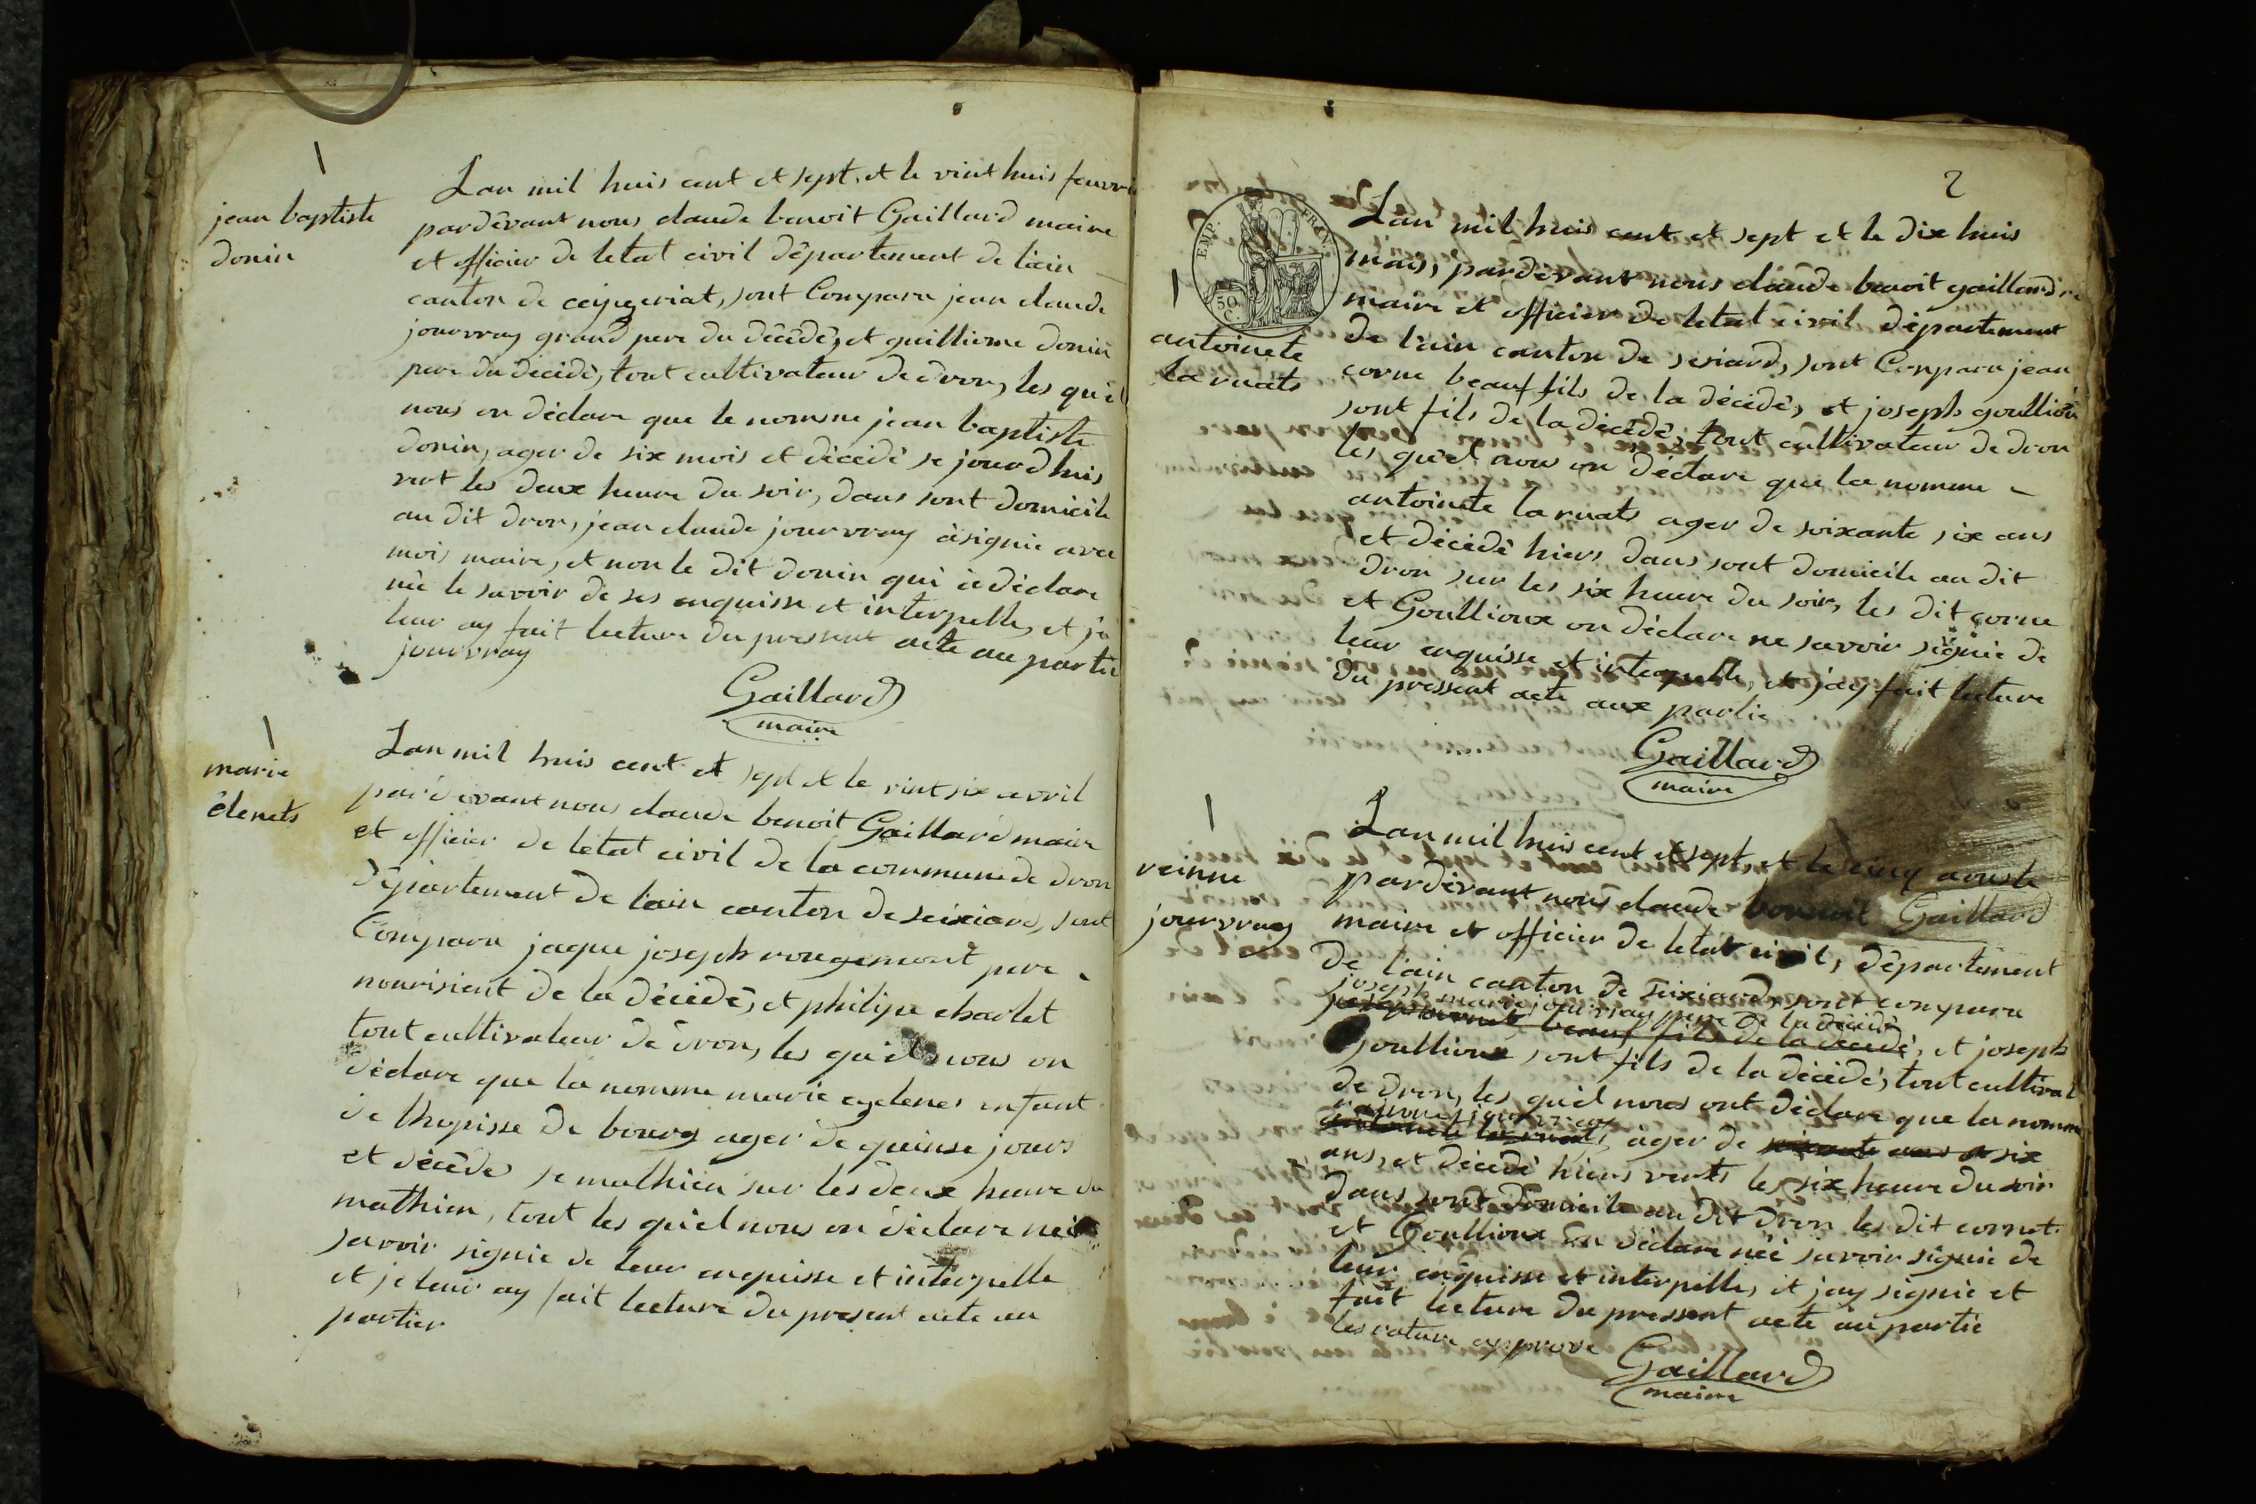 jean baptiste
donin
Lan mil huis cent et sept, et le vint huis feuvri
pardêvant nous claude benoit Gaillard maire
et officier de letat civil dêpartement de l'ain
canton de ceijzeriat, sont Compara jean claude
jourvray grand pere du dêcêdê, et guillieme donin
pere du decidê, tout cultivateur de dron, les quel
nous on dêclare que le nomme jean baptiste
donin, ager de six mois et dêcêdê se jourdhuis
vert les deux heure du soir, dans sont domicile
au dit dron, jean claude jourvray à signie avec
mois maire, et non le dit donin qui à dêclare
nêe le savoir de ses enquisse et interpelle, et je
leur ay fait lecture du pressent acte au partie
jourvray
Gaillard
maire
marie
êlenets
Lan mil huis cent et sept et le vint six avril
pardevant nous claude benoit Gaillard maire
et officier de letat civil de la commune de dron
dêpartement de l'ain canton de seixiard, sont
Compara jaque joseph rougemont pere
nourisient de la dêcêdê, et philipe charlet
tout cultivateur de dron, les quel nous on
dêclare que la nomme marie eglenes enfant
de lhopisse de bourg ager de quinse jours
et dêcêde se mathien sur les deux heure du
mathien, tout les quel nous on dêclare nêe
savoir signie de leur enquisse et interpelle
et je leur ay fait lecture du present acte au
partier
2
EMP. FRAN.
50
C.
antoinete
laruats
Lan mil huis cent et sept et le dix huis
mais, pardevant nous claude benoit gaillard
maire et officier de letat civil dêpartement
de l'ain canton de sesiard, sont Conpara jean
corne beauf fils de la dêcêdê, et joseph goullioû
sont fils de la dêcêdê, tout cultivateur de dron
les quel nous on dêclare que la nomme
antoinete laruats ager de soixante six ans
et dêcêdê hiers dans sont domicile au dit
dron sur les six heure du soir, les dit corne
et Goullioux on dêclare ne savoir signie de
leur enquisse et interpelle, et jay fait lecture
du pressent acte aux partie
Gaillard
maire
reinne
jourvray
Lan mil huis cent et sept et le cinq aouste
pardêvant nous claude bennoit Gaillard
maire et officier de letat civil, dêpartement
de l'ain canton de seixiard, sont compara
joseph marie jourvray pere de la dêcêdê
beauf fils de la dêcêdê, et joseph
goullioux sont fils de la dêcêdê, tout cultivat
de dron, les quel nous ont dêclare que la nomme
reinne jourvray
antoinete laruats, ager de soixante ans et six
ans, et dêcêdê hiers verts les six heure du soir
dans sont domicile au dit dron les dit cornet
et Goullioux on dêclare nêe savoir signie de
leur enquisse et interpelle, et jay signie et
fait lecture du pressent acte au partie
les rature approve
Gaillard
maire